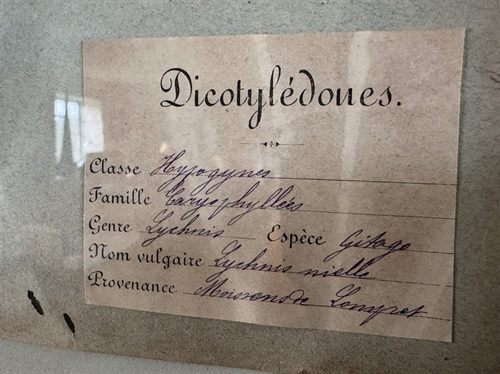 Dicotylédones.
Classe Hypogynes
Famille Caryophyllées
Genre Lychnis Espèce Githago
Nom vulgaire Lychnis nielle
Provenance Moissons de